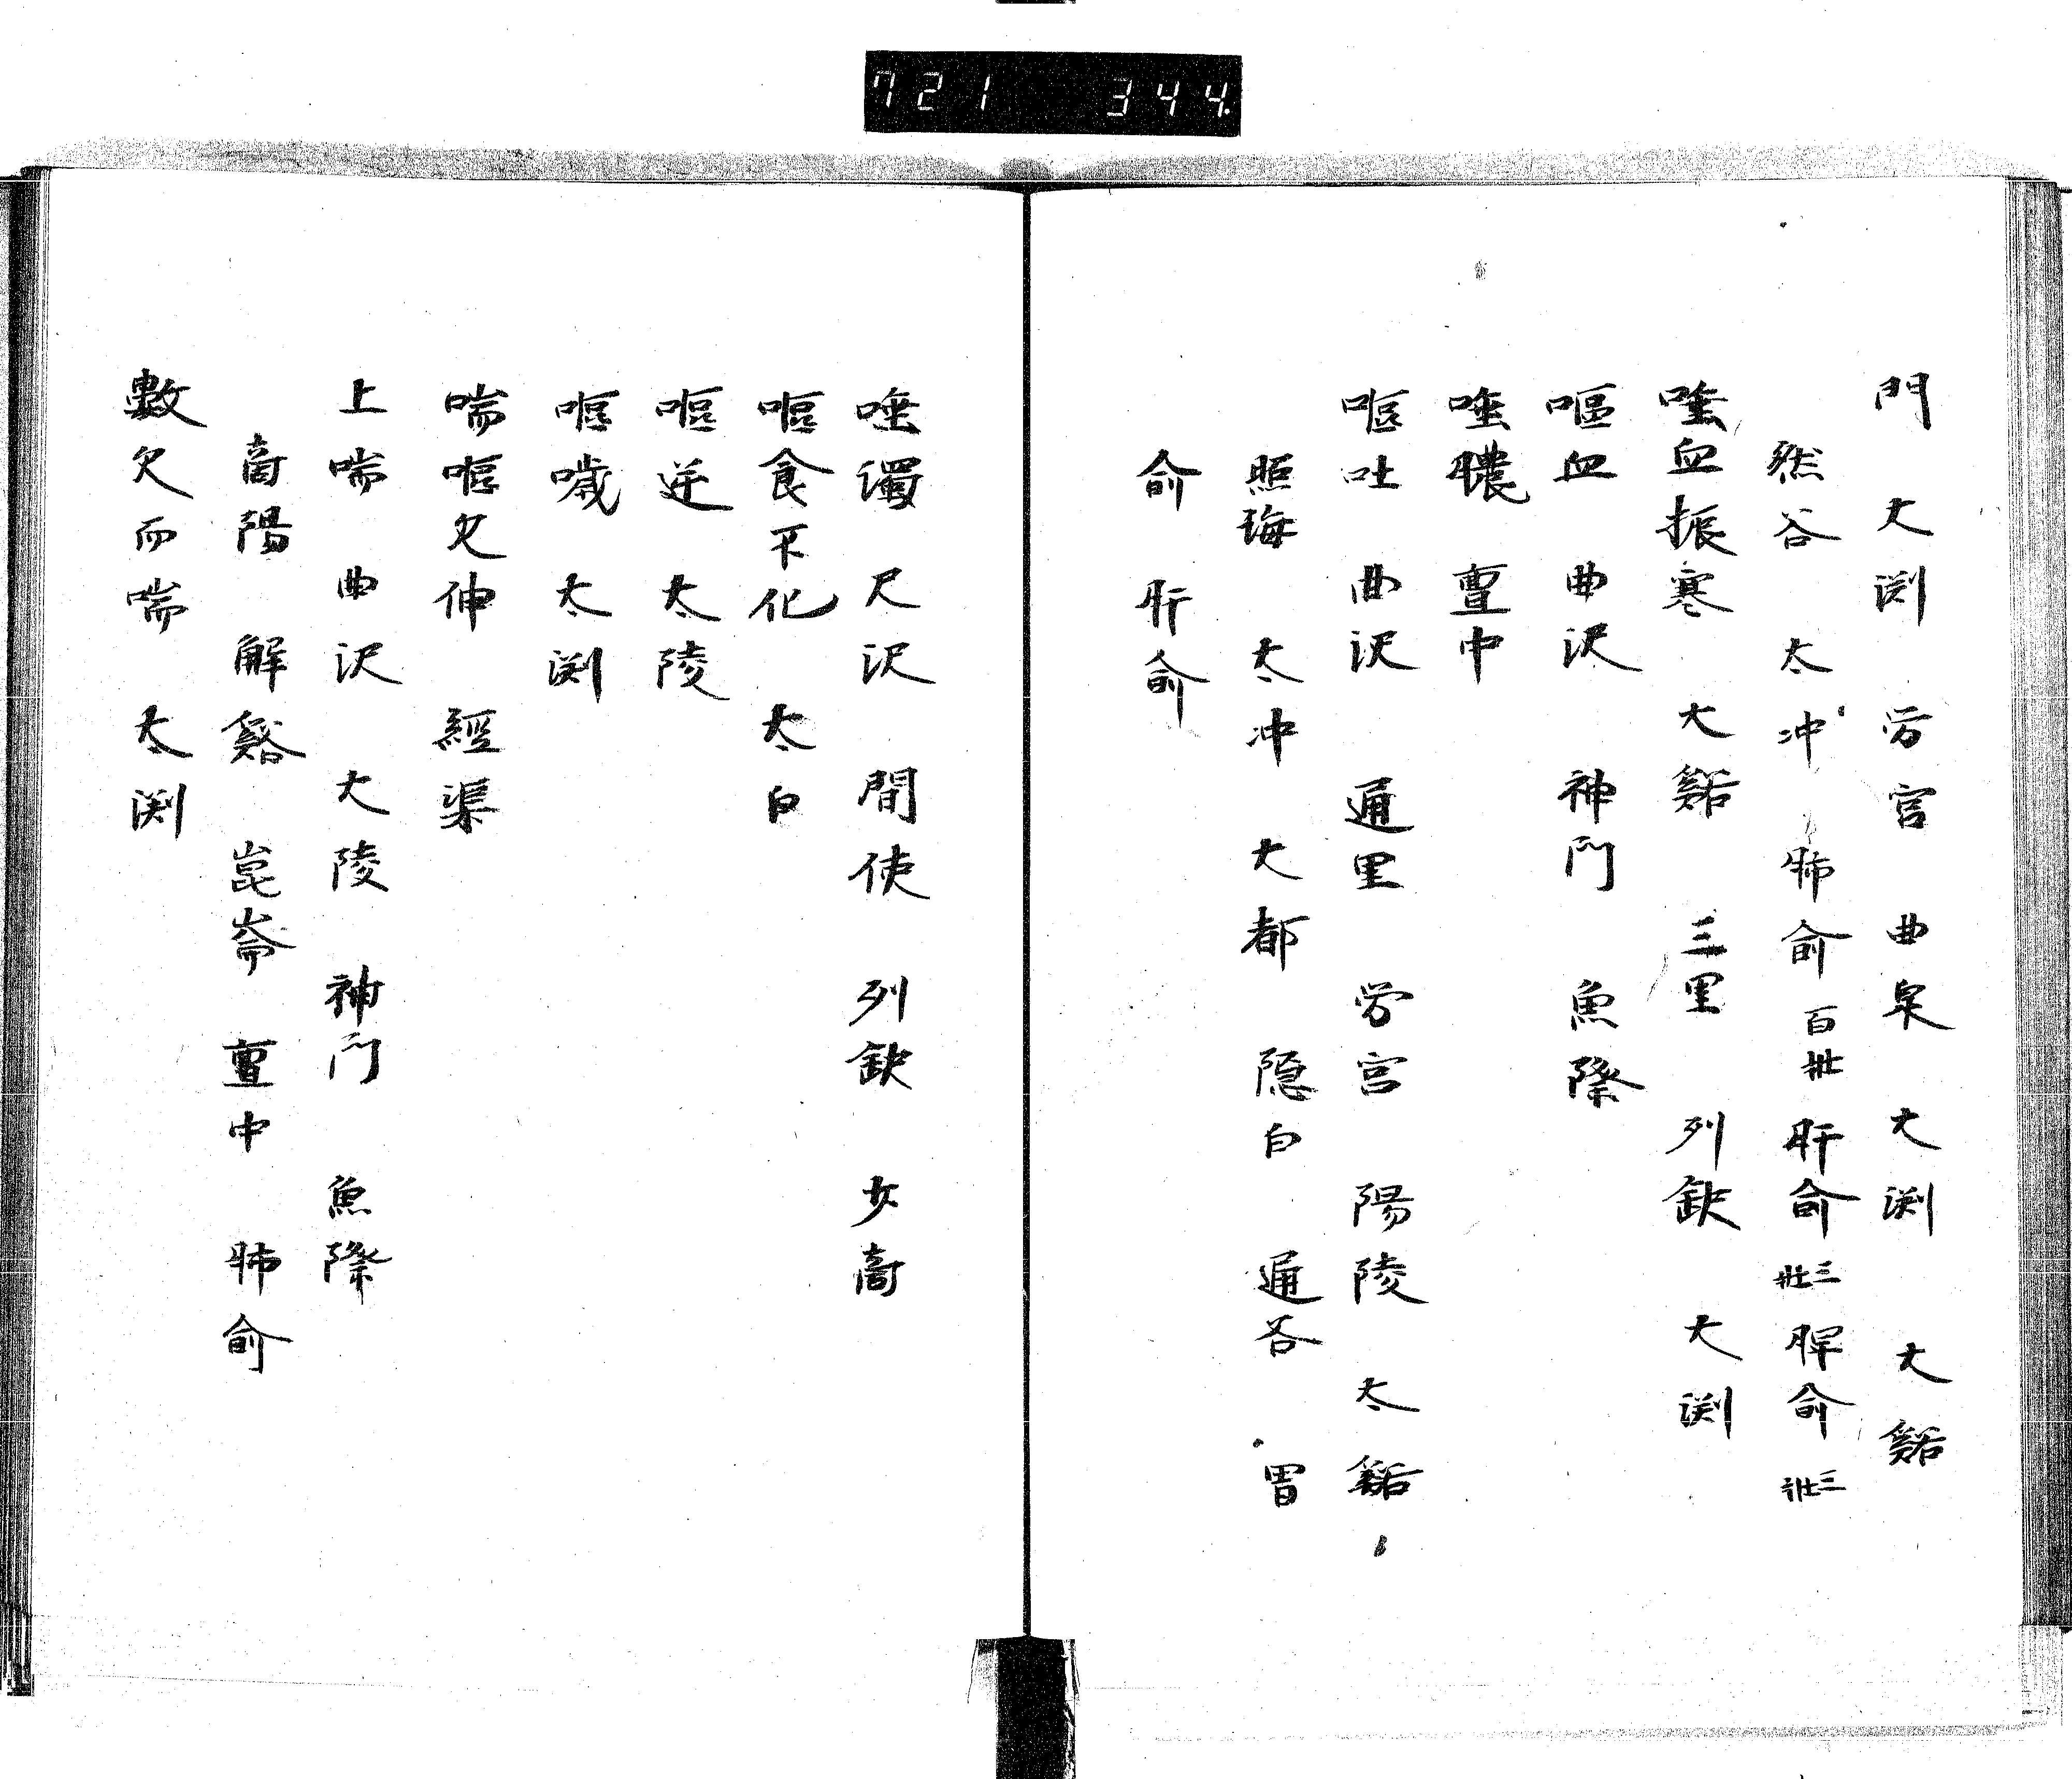 721 344.
門 大渕 労宮 曲泉 大渕 大谿
然谷 太冲 肺俞 百壯 肝俞 三壯 脾俞 三壯
唾血振寒 大谿 三里 列缺 大渕
嘔血 曲沢 神門 魚際
唾膿 亶中
嘔吐 曲沢 通里 労宮 陽陵 太谿
照海 太冲 大都 隠白 通谷 胃
俞 肝俞
唾濁 尺沢 間使 列缺 少商
嘔食不化 太白
嘔逆 太陵
嘔噦 太渕
喘嘔欠伸 經渠
上喘 曲沢 大陵 神門 魚際
商陽 解谿 崑崙 亶中 肺俞
數欠而喘 太渕